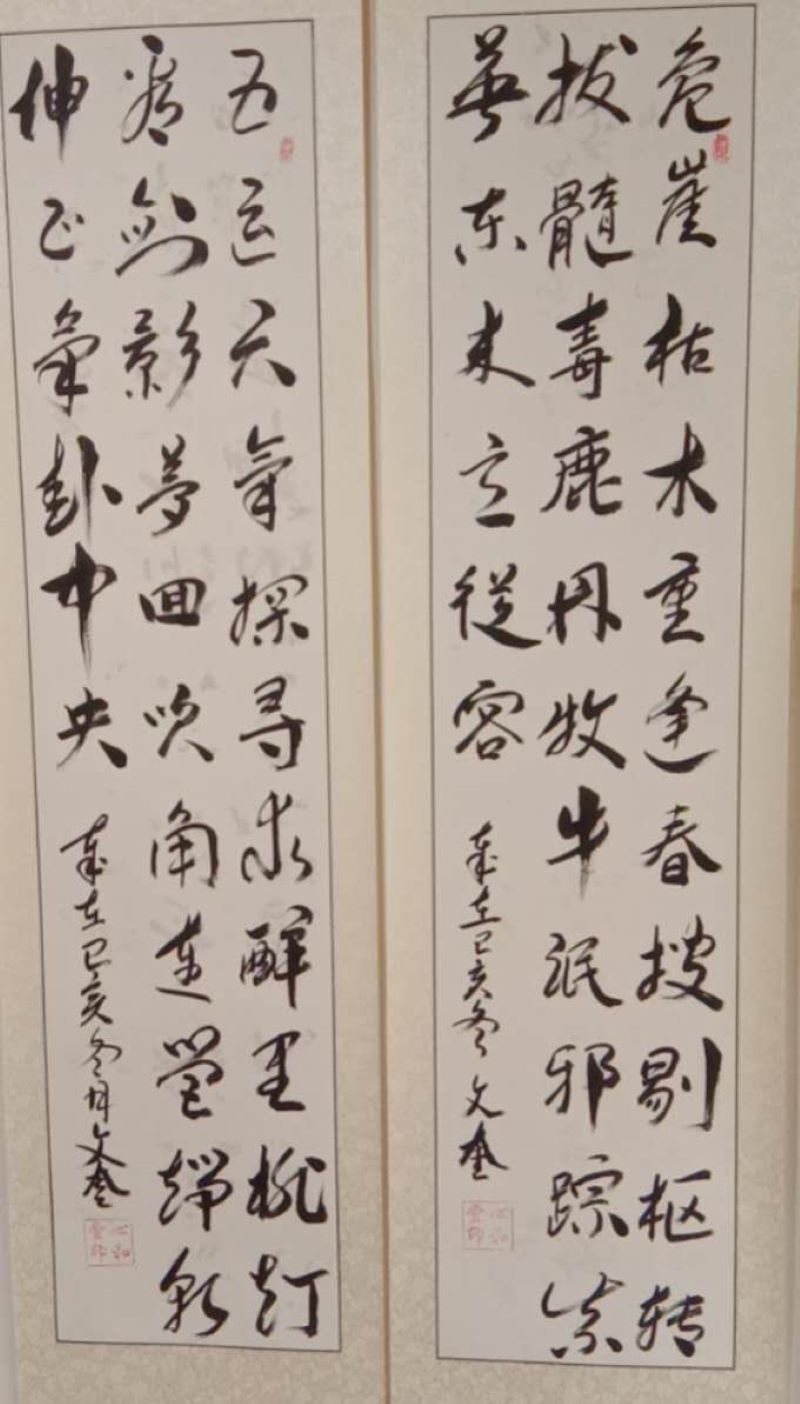 危崖枯木重逢春搜剔枢转
拔髓毒鹿丹牧牛泯邪踪紫
东来從容
岁在己亥冬 文奎
五运六氣探寻求醉里挑灯
看剑影梦回吹角连营
伸正氣卦中央
岁在己亥冬月文奎